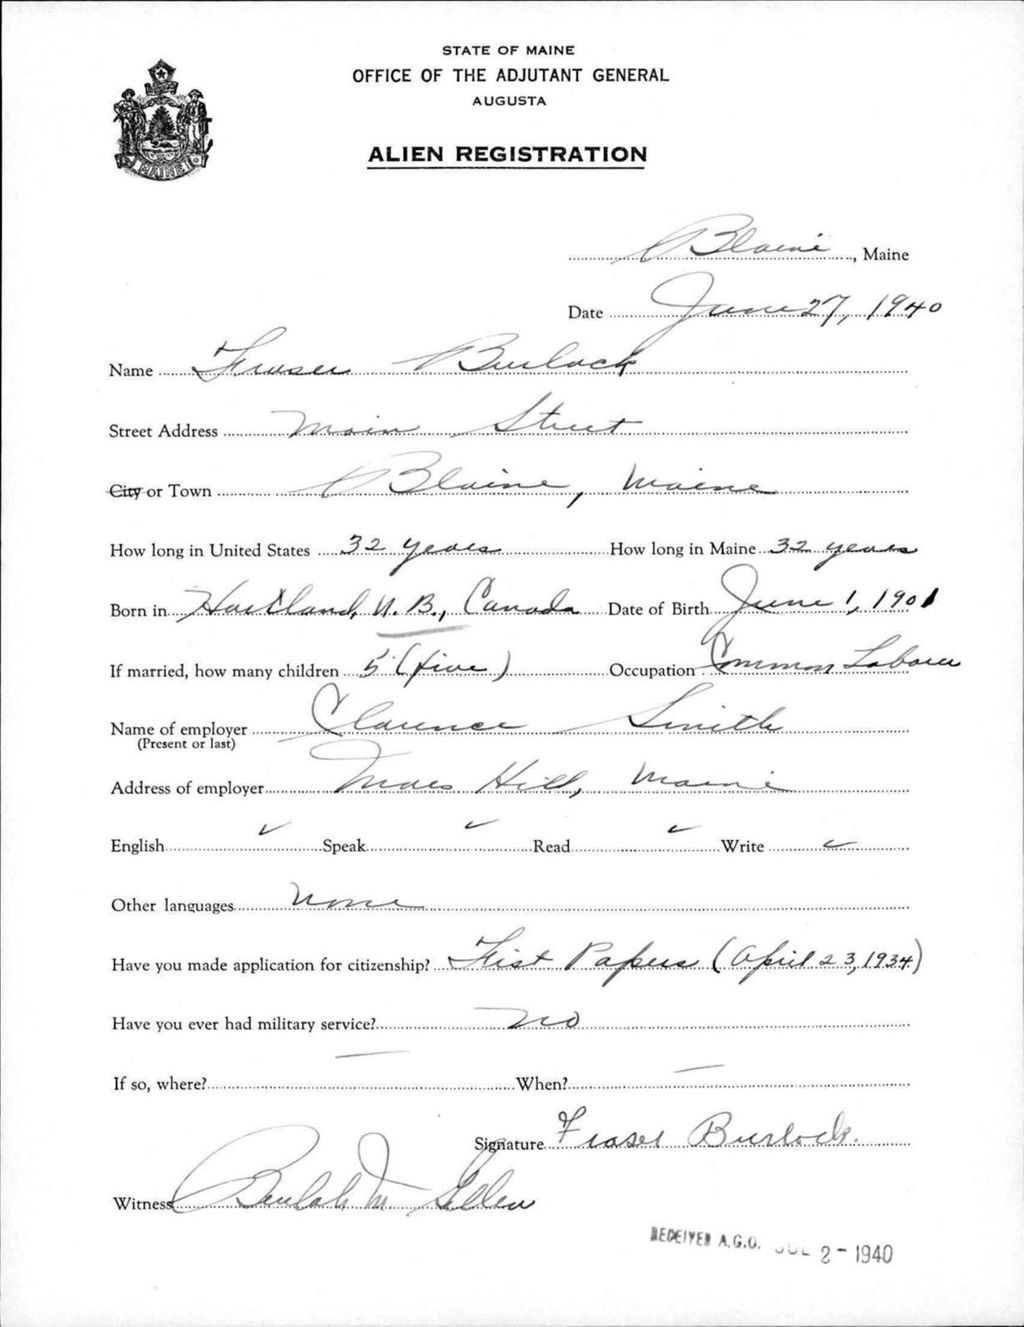 STATE OF MAINE
OFFICE OF THE ADJUTANT GENERAL
AUGUSTA
ALIEN REGISTRATION
MAINE
Blaine, Maine
Date June 27, 1940
Name Fraser Burlock
Street Address Main Street
City or Town Blaine, Maine
How long in United States 32 years How long in Maine 32 years
Born in Hartland, N. B., Canada Date of Birth June 1, 1901
If married, how many children 5 (five) Occupation Common Laborer
Name of employer Clarence Smith
(Present or last)
Address of employer Mars Hill, Maine
English ✓ Speak ✓ Read ✓ Write ✓
Other languages None
Have you made application for citizenship? Fist Papers (April 23, 1934)
Have you ever had military service? No
If so, where? — When? —
Signature Fraser Burlock.
Witness Beulah M
RECEIVED A.G.O. JUL 2 - 1940